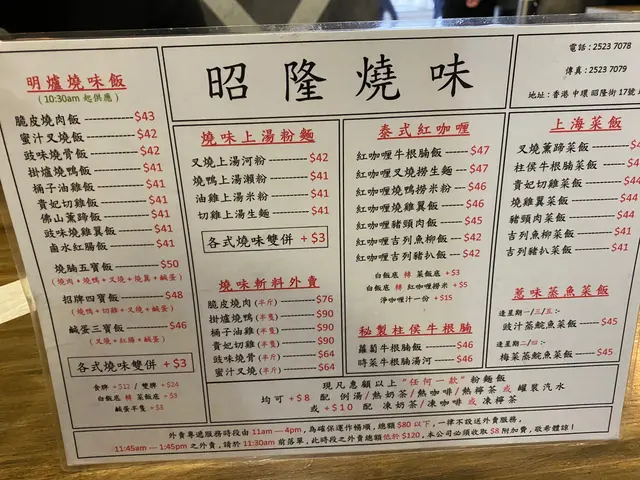 昭隆燒味
電話：2523 7078
傳真：2523 7079
地址：香港 中環 昭隆街 17號
明爐燒味飯
(10:30am 起供應)
脆皮燒肉飯 $43
蜜汁叉燒飯 $42
豉味燒骨飯 $42
掛爐燒鴨飯 $41
桶子油雞飯 $41
貴妃切雞飯 $41
佛山薰蹄飯 $41
豉味燒雞翼飯 $41
鹵水紅腸飯 $41
燒腩五寶飯 $50
(燒肉+燒鴨+叉燒+燒翼+鹹蛋)
招牌四寶飯 $48
(燒鴨+切雞+叉燒+鹹蛋)
鹹蛋三寶飯 $46
(叉燒+紅腸+鹹蛋)
各式燒味雙併 + $3
食髀 +$12 / 雙髀 +$24
白飯底 轉 菜飯底 +$3
鹹蛋半隻 +$3
燒味上湯粉麵
叉燒上湯河粉 $42
燒鴨上湯瀨粉 $41
油雞上湯米粉 $41
切雞上湯生麵 $41
各式燒味雙併 + $3
燒味斬料外賣
脆皮燒肉(半斤) $76
掛爐燒鴨(半隻) $90
桶子油雞(半隻) $90
貴妃切雞(半隻) $90
豉味燒骨(半斤) $64
蜜汁叉燒(半斤) $64
泰式紅咖喱
紅咖喱牛根腩飯 $47
紅咖喱叉燒撈生麵 $47
紅咖喱燒鴨撈米粉 $46
紅咖喱燒雞翼飯 $46
紅咖喱豬頸肉飯 $45
紅咖喱吉列魚柳飯 $42
紅咖喱吉列豬扒飯 $42
白飯底 轉 菜飯底 +$3
白飯底 轉 紅咖喱撈米 +$5
淨咖喱汁一份 +$15
秘製柱侯牛根腩
蘿蔔牛根腩飯 $46
時菜牛根腩湯河 $46
上海菜飯
叉燒薰蹄菜飯
柱侯牛根腩菜飯
貴妃切雞菜飯 $44
燒雞翼菜飯 $44
豬頸肉菜飯 $44
吉列魚柳菜飯 $41
吉列豬扒菜飯 $41
蔥味蒸魚菜飯
逢星期一/三/五：
豉汁蒸鯇魚菜飯 $45
逢星期二/四：
梅菜蒸鯇魚菜飯 $45
現凡惠顧以上"任何一款"粉麵飯
均可 +$8 配 例湯/熱奶茶/熱咖啡/熱檸茶 或 罐裝汽水
或 +$10 配 凍奶茶/凍咖啡 或 凍檸茶
外賣專遞服務時段由 11am — 4pm，為確保運作暢順，總額 $80 以下，一律不設送外賣服務，
11:45am — 1:45pm 之外賣，請於 11:30am 前落單，此時段之外賣總額低於 $120，本公司必須收取 $8 附加費，敬希體諒！